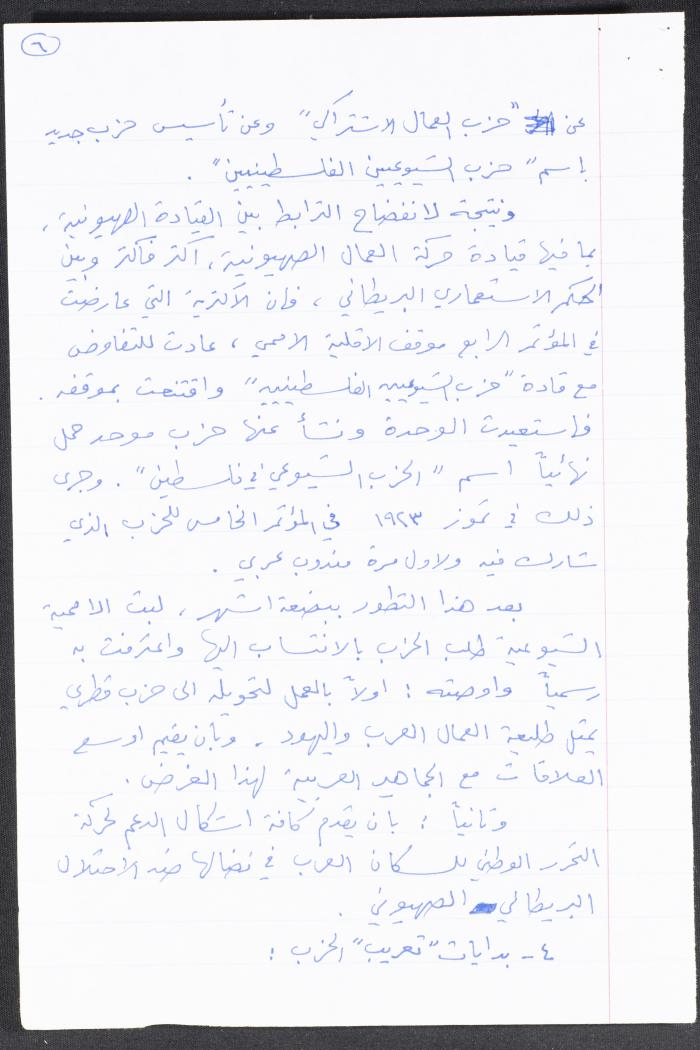 ٦
عن "حزب العمال الاشتراكي" وعن تأسيس حزب جديد
بإسم "حزب الشيوعيين الفلسطينيين".
ونتيجة لانفضاح الترابط بين القيادة الصهيونية،
بما فيها قيادة حركة العمال الصهيونية، أكثر فأكثر وبين
الحكم الاستعماري البريطاني، فان الأكثرية التي عارضت
في المؤتمر الرابع موقف الاقلية الاممي، عادت للتفاوض
مع قادة "حزب الشيوعيين الفلسطينيين" واقتنعت بموقفه.
فإستعيدت الوحدة ونشأ عنها حزب موحد حمل
نهائياً اسم "الحزب الشيوعي في فلسطين". وجرى
ذلك في تموز ١٩٢٣ في المؤتمر الخامس للحزب الذي
شارك فيه ولاول مرة مندوب عربي.
بعد هذا التطور ببضعة اشهر، لبت الاممية
الشيوعية طلب الحزب بالانتساب اليها واعترفت به
رسمياً واوصته: اولاً بالعمل لتحويله الى حزب قطري
يمثل طليعة العمال العرب واليهود. وبأن يقيم اوسع
العلاقات مع الجماهير العربية لهذا الغرض.
وثانياً: بان يقدم كافة اشكال الدعم لحركة
التحرر الوطني للسكان العرب في نضالها ضد الاحتلال
البريطاني الصهيوني.
٤- بدايات "تعريب" الحزب: